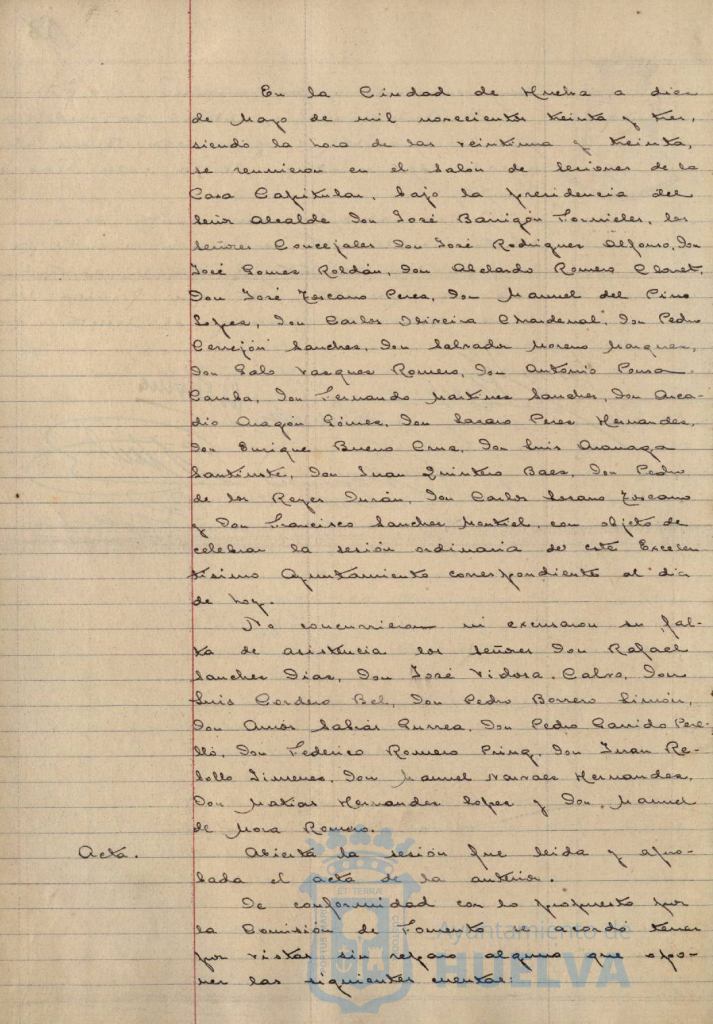 En la Ciudad de Huelva a diez
de Mayo de mil novecientos treinta y tres,
siendo la hora de las veintiuna y treinta,
se reunieron en el Salón de Sesiones de la
Casa Capitular, bajo la presidencia del
Señor Alcalde Don José Barrigón Fornieles, los
señores Concejales Don José Rodriguez Alfonso, Don
José Gomez Roldán, Don Abelardo Romero Claret,
Don José Toscano Perez, Don Manuel del Pino
Lopez, Don Carlos Oliveira Chardenal, Don Pedro
Cerrejón Sanchez, Don Salvador Moreno Marquez,
Don Galo Vazquez Romero, Don Antonio Ponsa
Camba, Don Fernando Martinez Sanchez, Don Arca-
dio Aragón Gómez, Don Lazaro Perez Hernandez,
Don Enrique Bueno Cruz, Don Luis
Don Juan Quintero Baez, Don Pedro
de los Reyes Durán, Don Carlos Lozano Toscano
y Don Francisco Sanchez Montiel, con objeto de
celebrar la sesión ordinaria de este Excelen
tisimo Ayuntamiento correspondiente al dia
de hoy.
No concurrieron ni excusaron su fal-
ta de asistencia los señores Don Rafael
Sanchez Diaz, Don José Vidosa Calvo, Don
Luis Cordero Bel, Don Pedro Borrero Limón,
Don Amós Sabrás Gurrea, Don Pedro Garrido Pere-
lló, Don Federico Romero Don Juan Re-
bollo Jimenez, Don Manuel Narvaez Hernandez,
Don Matías Hernandez Lopez y Don Manuel
de Mora Romero.
Acta.
Abierta la sesión fue leida y apro-
bada el acta de la anterior.
De conformidad con lo propuesto por
la Comisión de Fomento se acordó tener
por vistas sin reparo alguno que opo-
ner las siguientes cuentas:
ET TERRÆ
Ayuntamiento de
HUELVA